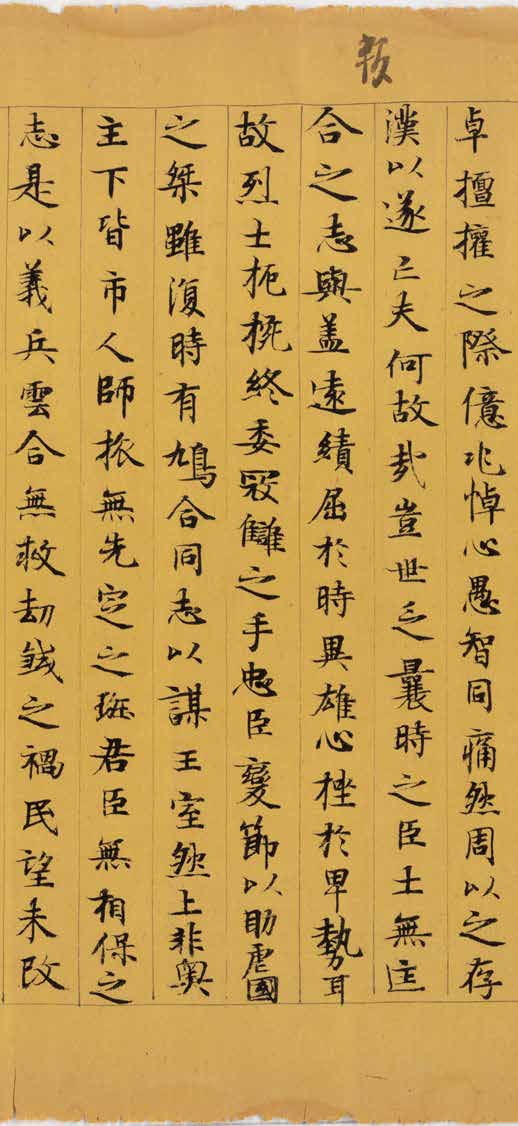 卓擅權之際億兆悼心愚智同痛然周以之存
漢以遂亡夫何故哉豈世乏曩時之臣士無匡
合之志與盖遠績屈於時異雄心挫於卑勢耳
故烈士扼捥終委寇讎之手忠臣變節以助虐國
之桀雖復時有鳩合同志以謀王室然上非奧
主下皆市人師旅無先定之班君臣無相保之
志是以義兵雲合無救劫弑之禍民望未改